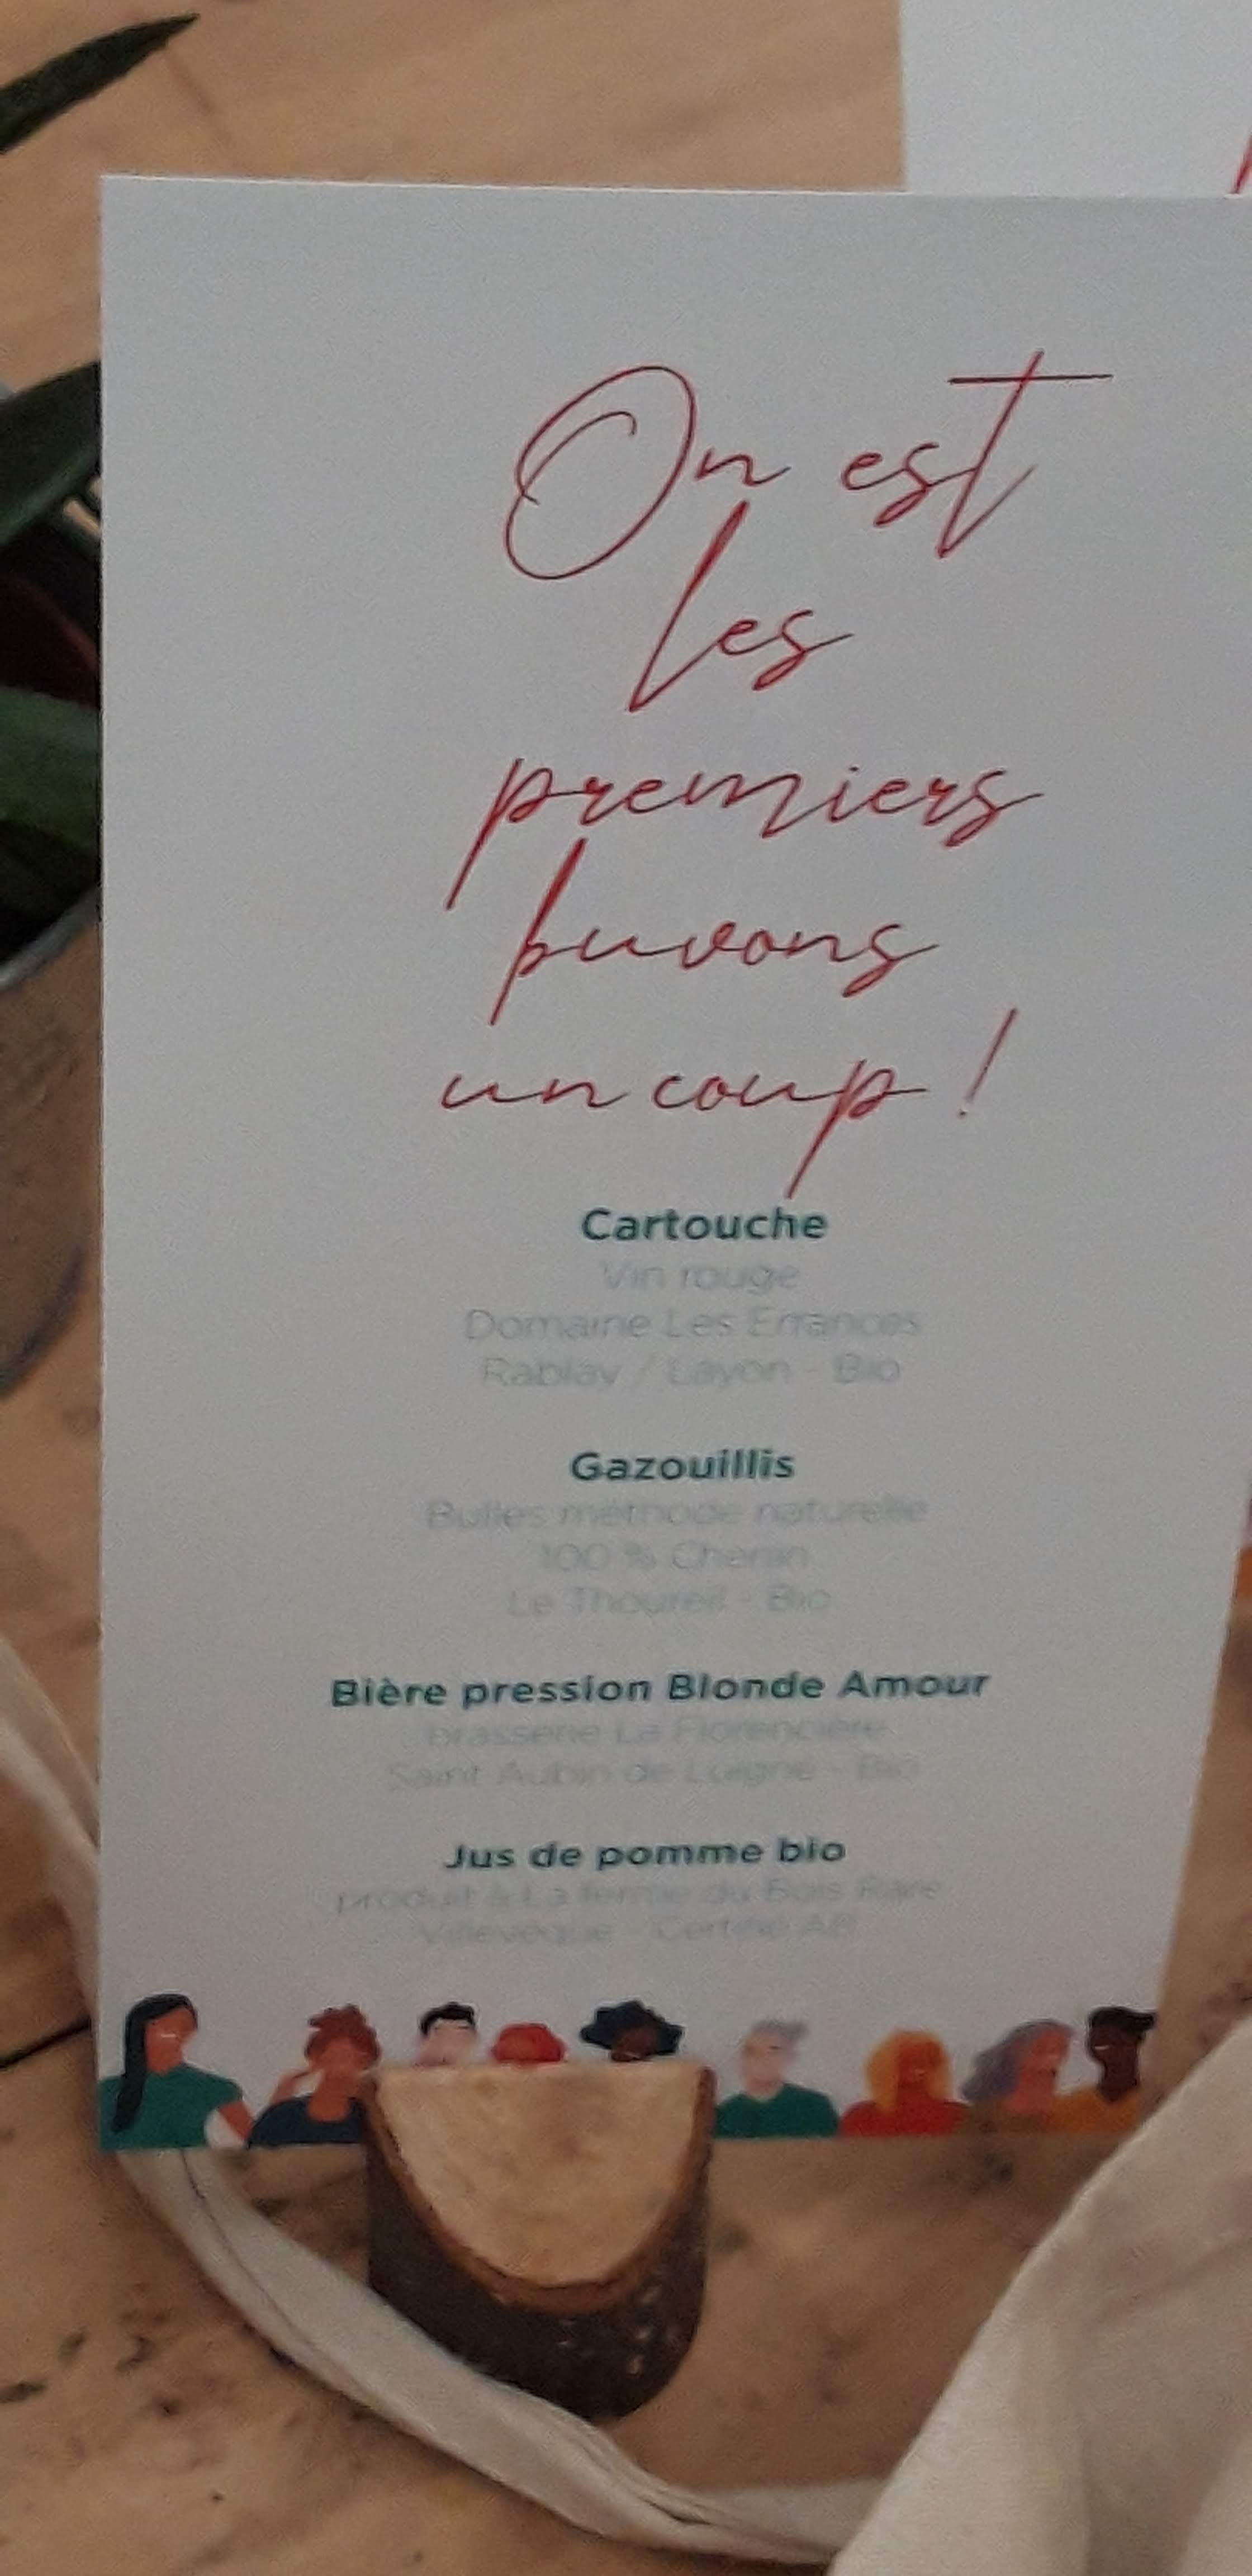 On est
les
premiers
buvons
un coup !
Cartouche
Vin rouge
Domaine Les Errances
Rablay / Layon - Bio
Gazouillis
Bulles méthode naturelle
100 % Chenin
Le Thoureil - Bio
Bière pression Blonde Amour
Brasserie La Florencière
Saint Aubin de Luigné - Bio
Jus de pomme bio
produit à La ferme du Bois Rare
Villevêque - Certifié AB